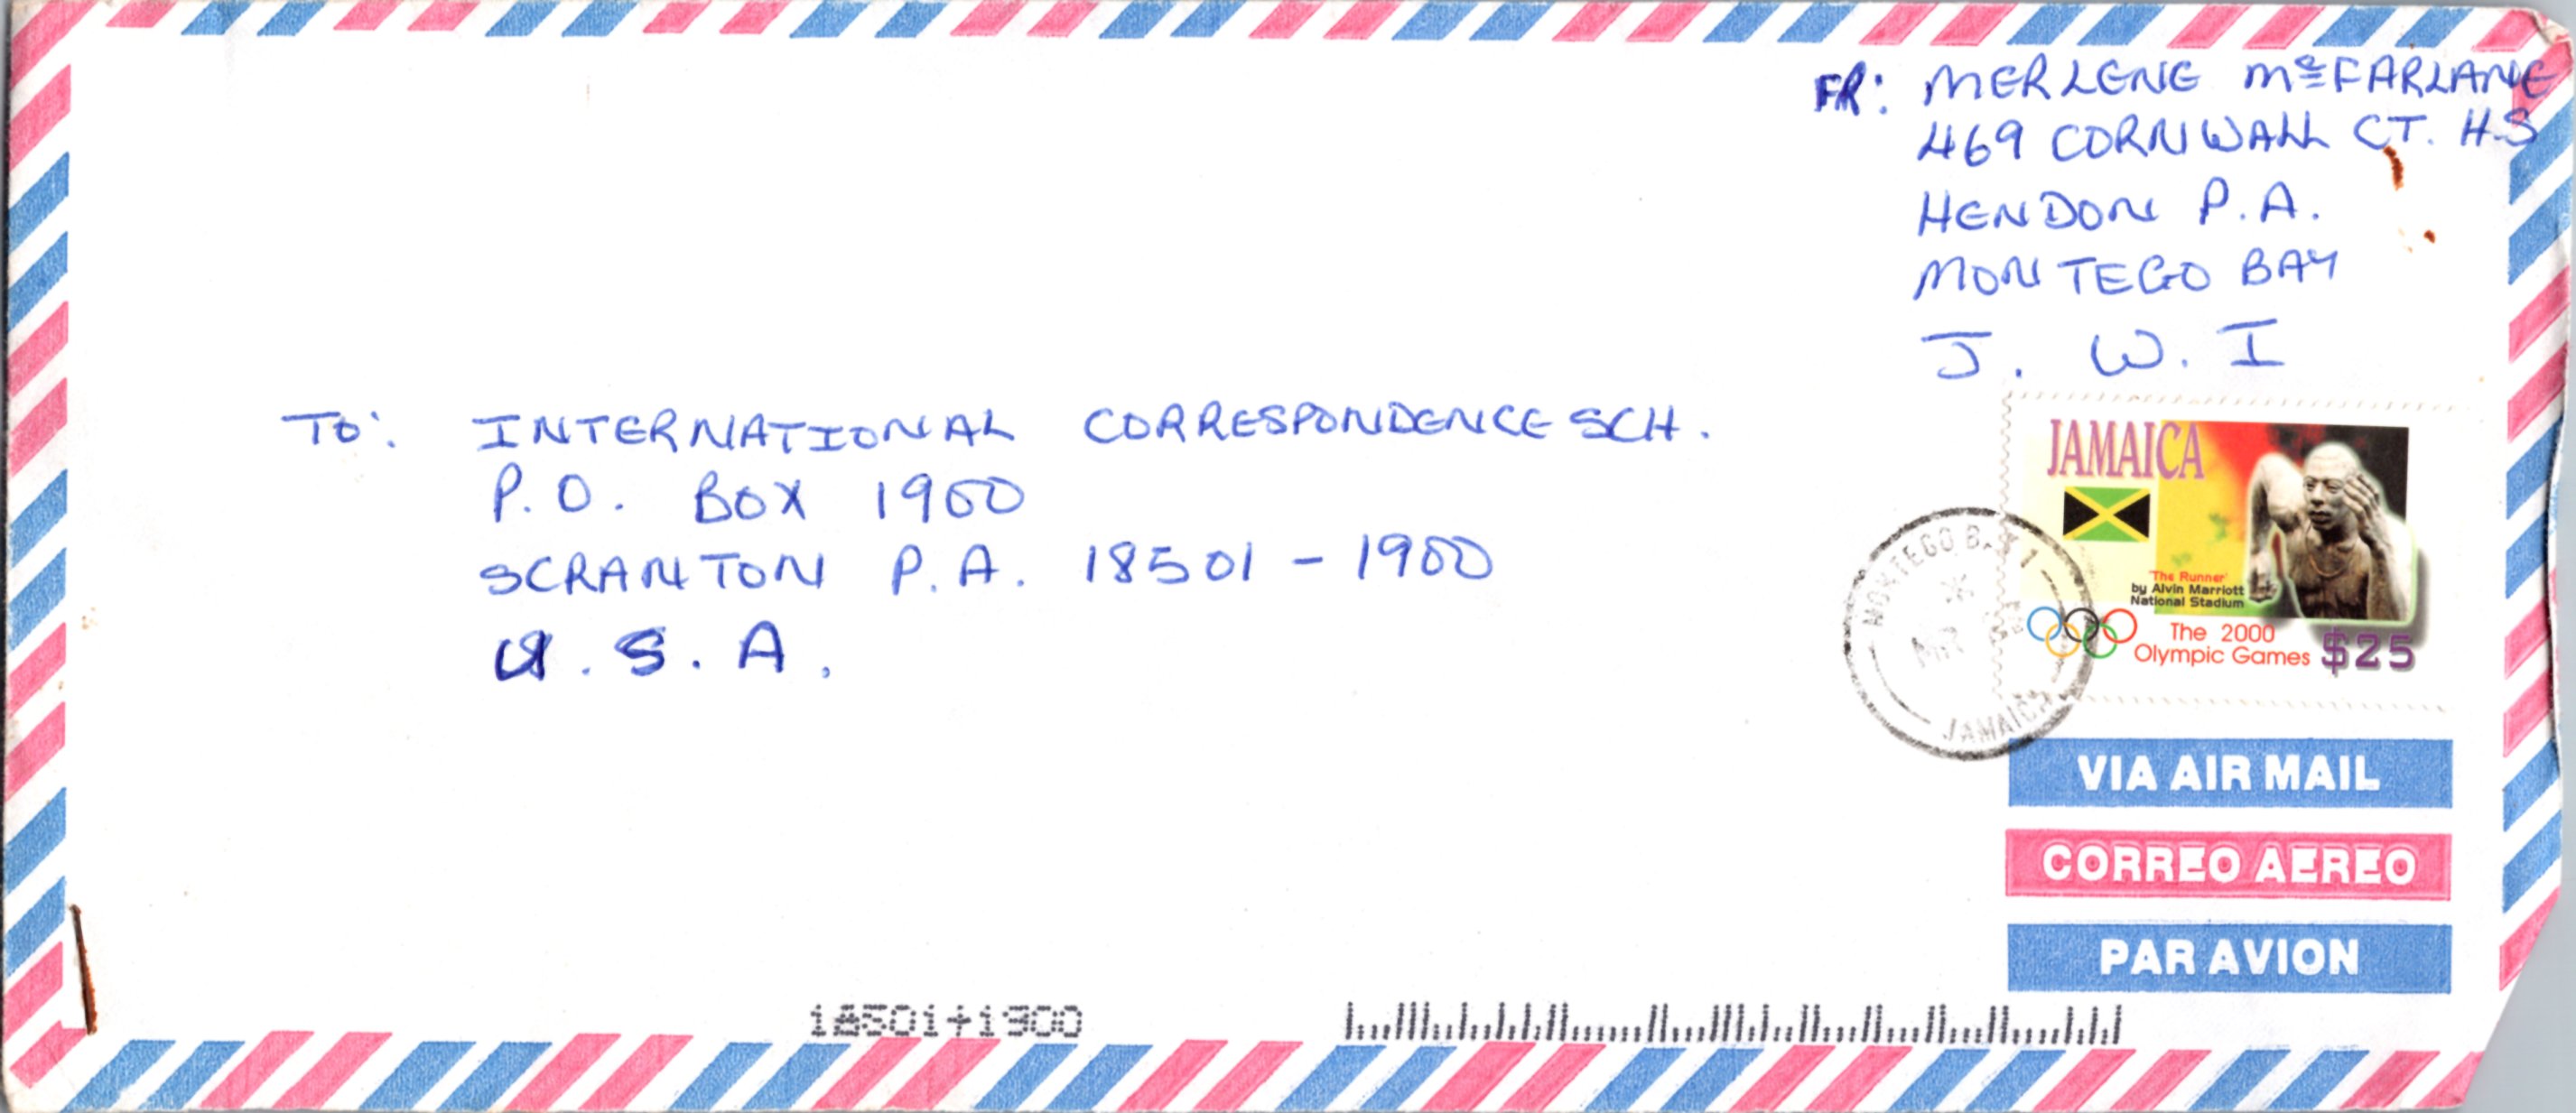 FR: MERLENE McFARLANE
469 CORNWALL CT. H.S
HENDON P.A.
MONTEGO BAY
J. W. I
TO: INTERNATIONAL CORRESPONDENCE SCH.
P.O. BOX 1900
SCRANTON P.A. 18501 - 1900
U.S.A.
JAMAICA
'The Runner'
by Alvin Marriott
National Stadium
The 2000
Olympic Games
$25
MONTEGO BAY 1
JAMAICA
VIA AIR MAIL
CORREO AEREO
PAR AVION
18501+1900